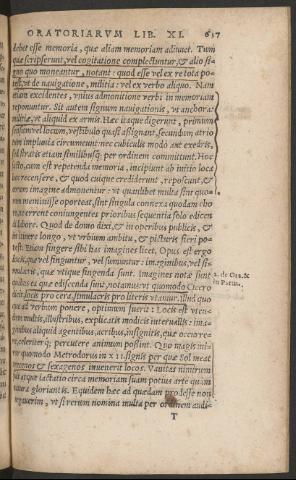 ORATORIARVM LIB. XI. 637
debet esse memoria, que aliam memoriam adiuuet. Tum
quæ scripserunt, vel cogitatione complectuntur, & alio si-
gno quo moneantur, notant: quod esse vel ex re tota po-
test, vt de nauigatione, militia: vel ex verbo aliquo. Nam
etiam excidentes, vnius admonitione verbi in memoriam
reponuntur. Sit autem signum nauigationis, vt anchora:
militiæ, vt aliquid ex armis. Hæc ita que digerunt, primum
sensum vel locum, vestibulo quasi assignant, secundum atrio
tum impluuia circumeunt: nec cubiculis modò aut exedris,
sed stratis etiam similibusq; per ordinem committunt. Hoc
facto, cum est repetenda memoria, incipiunt ab initio loca
hæc recensere, & quod cuique crediderunt, reposcunt, &
eorum imagine admonentur: vt quamlibet multa sint quo-
rum meminisse oporteat, sint singula connexa quodam cho-
ro, ne errent coniungentes prioribus sequentia solo ediscen-
di labore. Quod de domo dixi, & in operibus publicis, &
in itinere longo, vt vrbium ambitu, & picturis fieri po-
test. Etiam fingere sibi has imagines licet. Opus est ergo
locis, quæ vel finguntur, vel sumuntur: imaginibus, vel si-
mulacris, quæ vtique fingenda sunt. Imagines notæ sunt
quibus ea quæ ediscenda sunt, notamus: vt quomodo Cicero
dicit, locis pro cera, simulacris pro literis vtamur. Illud quo
que ad verbum ponere, optimum fuerit: Locis est vten-
dum multis, illustribus, explicatis modicis interuallis: ima-
ginibus aliquid agentibus, acribus, insignitis, quæ occurre-
re, celeriterq; percutere animum possint. Quo magis mi-
ror quomodo Metrodorus in XII. signis per quæ Sol meat
trecenos & sexagenos inuenerit locos. Vanitas nimirum
fuit atque iactatio circa memoriam suam potius arte quàm
natura gloriantis. Equidem hæc ad quædam prodesse non
negauerim, vt si rerum nomina multa per ordinem audi-
T
2. de Ora. &
in Partitio.